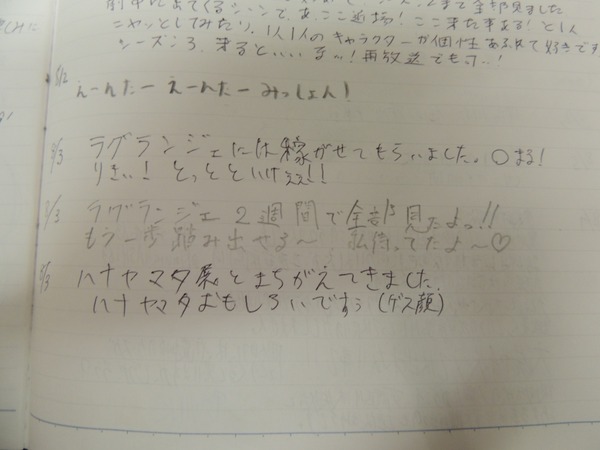 シーンで、あ、ここ道場！ここ来た事ある！と1人
ニヤッとしてみたり、1人1人のキャラクターが個性あふれて好きです
シーズン3、来るといいなッ！再放送でも可･･！
えーんたー えーんたー みっしょん！
8/3 ラグランジェには稼がせてもらいました。○まる！
りきぃ！ とっととといけぇぇ!!
ラグランジェ 2週間で全部見たよっ!!
もう一歩踏み出せる〜 私待ってたよ〜♡
8/3 ハナヤマタ展とまちがえてきました。
ハナヤマタおもしろいですぅ(ゲス顔)